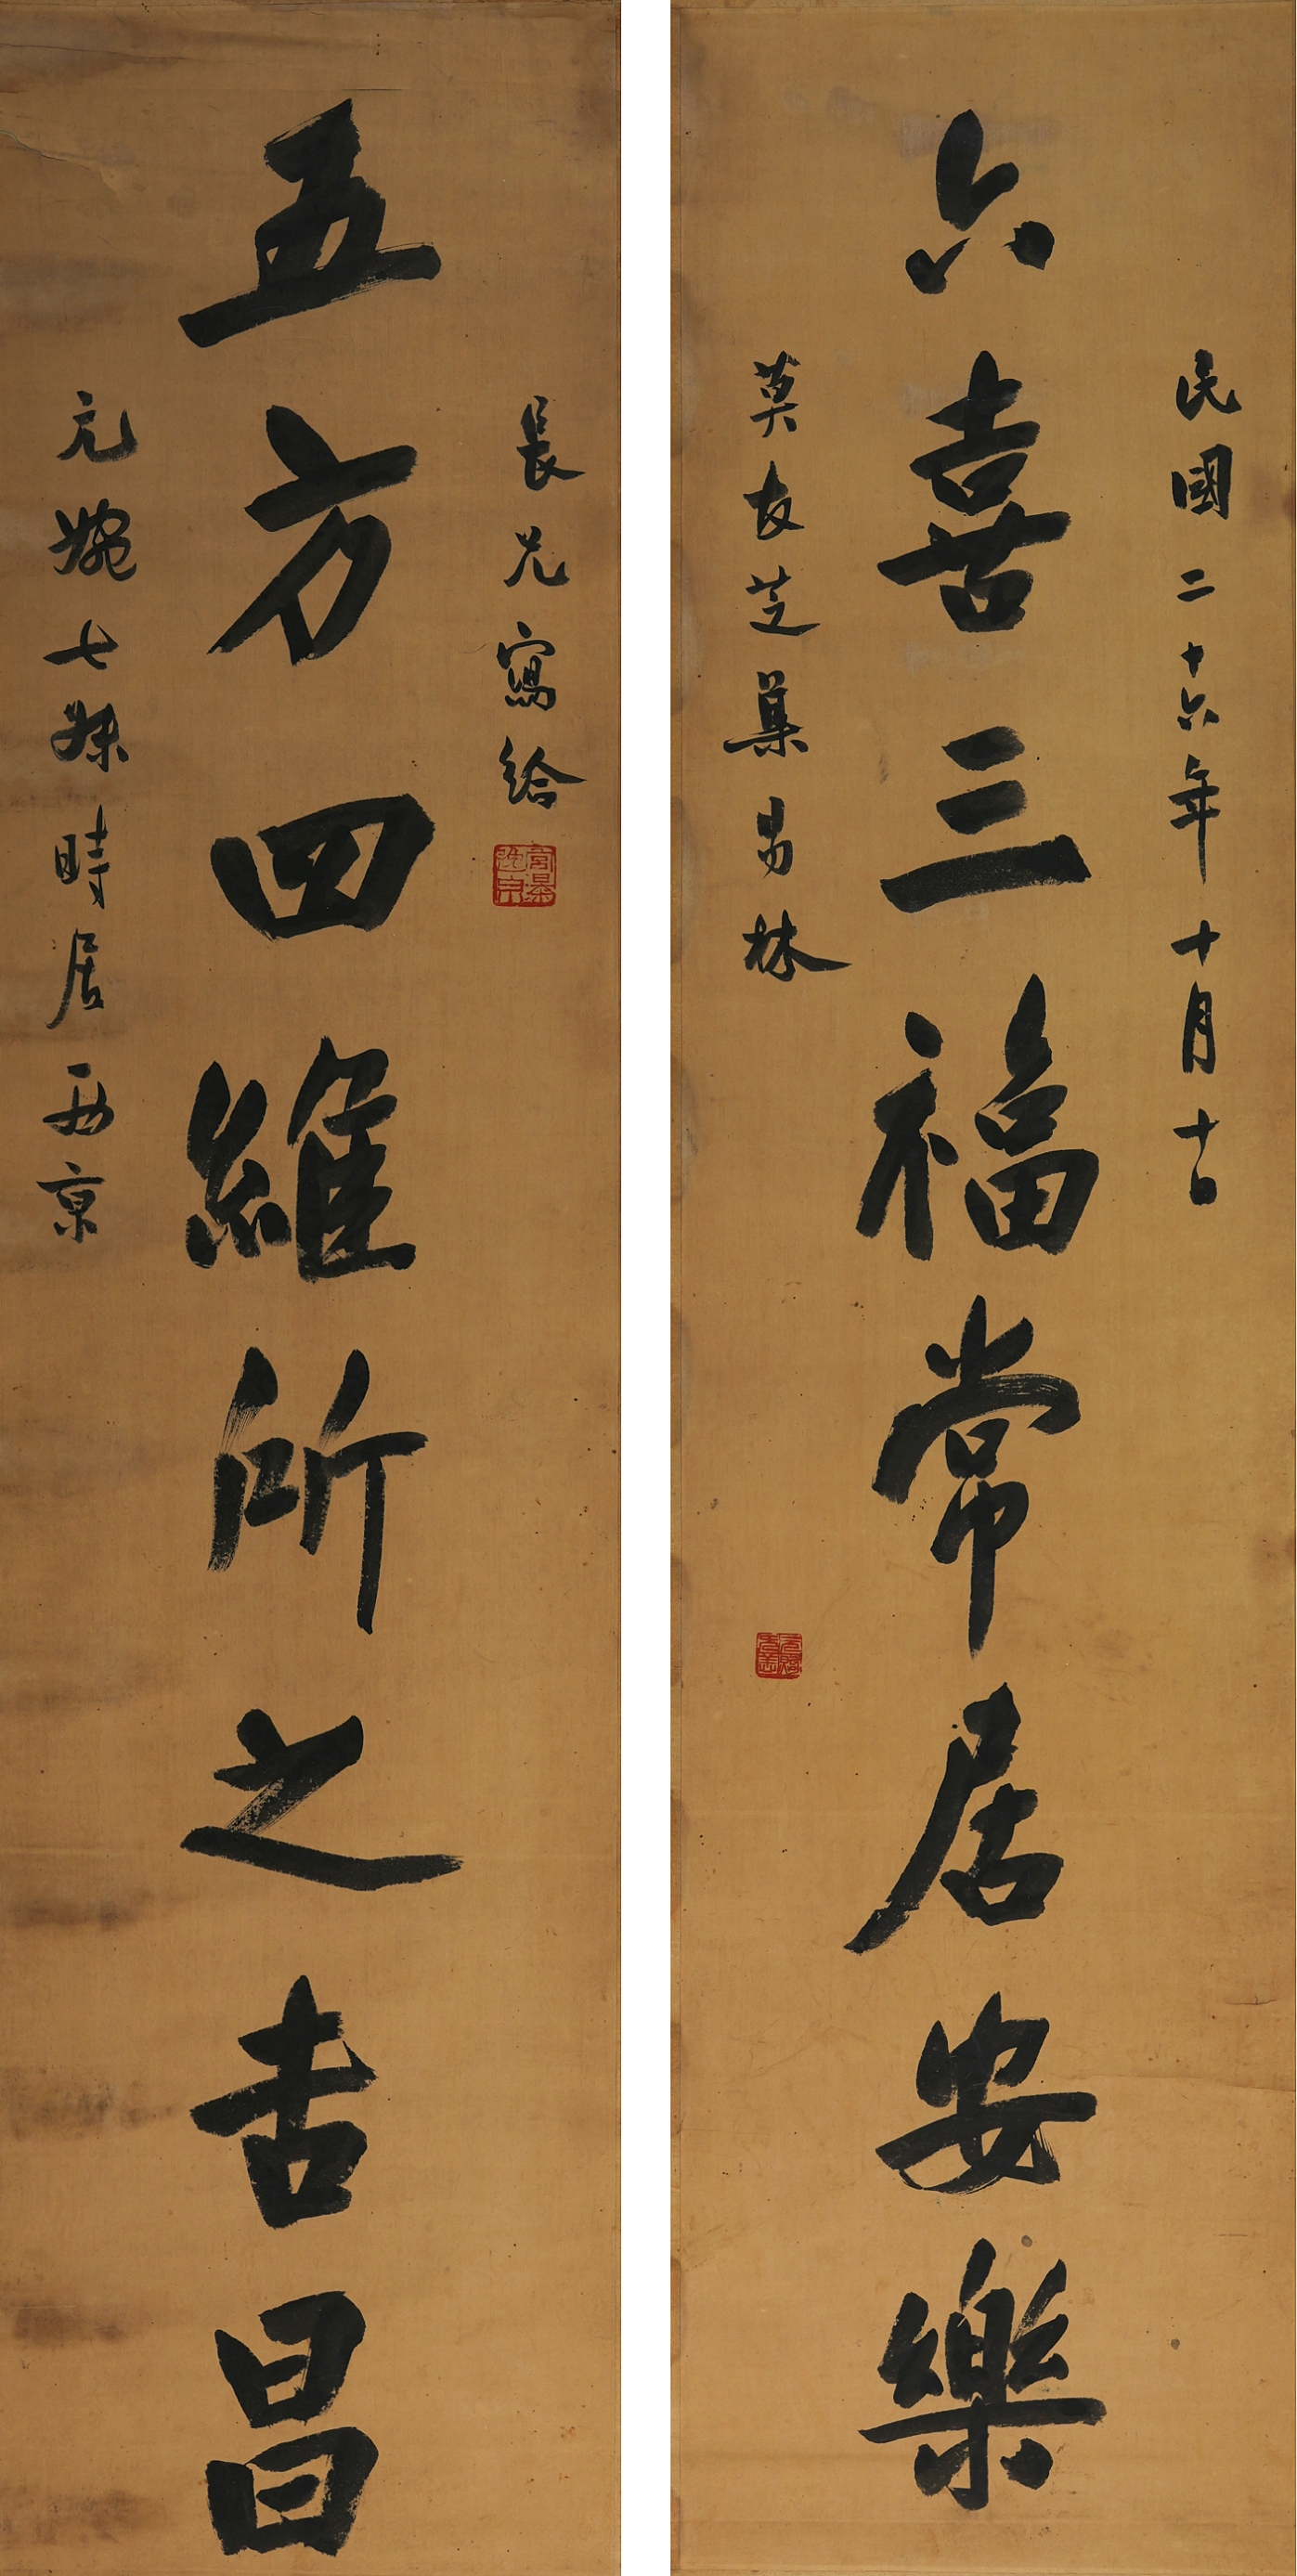 民國二十六年十月十日
六喜三福常居安樂
莫友芝集易林
長兄寫給
五方四維所之吉昌
元婉七妹時居西京